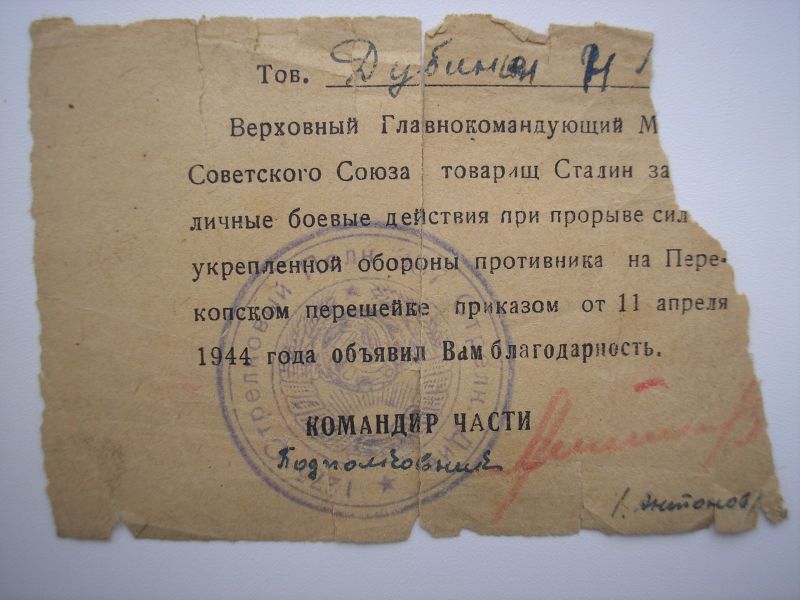 Тов. Дубинин Н
Верховный Главнокомандующий М
Советского Союза товарищ Сталин за
личные боевые действия при прорыве сил
укрепленной обороны противника на Пере-
копском перешейке приказом от 11 апреля
1944 года объявил Вам благодарность.
КОМАНДИР ЧАСТИ
Подполковник
/. Антонов/